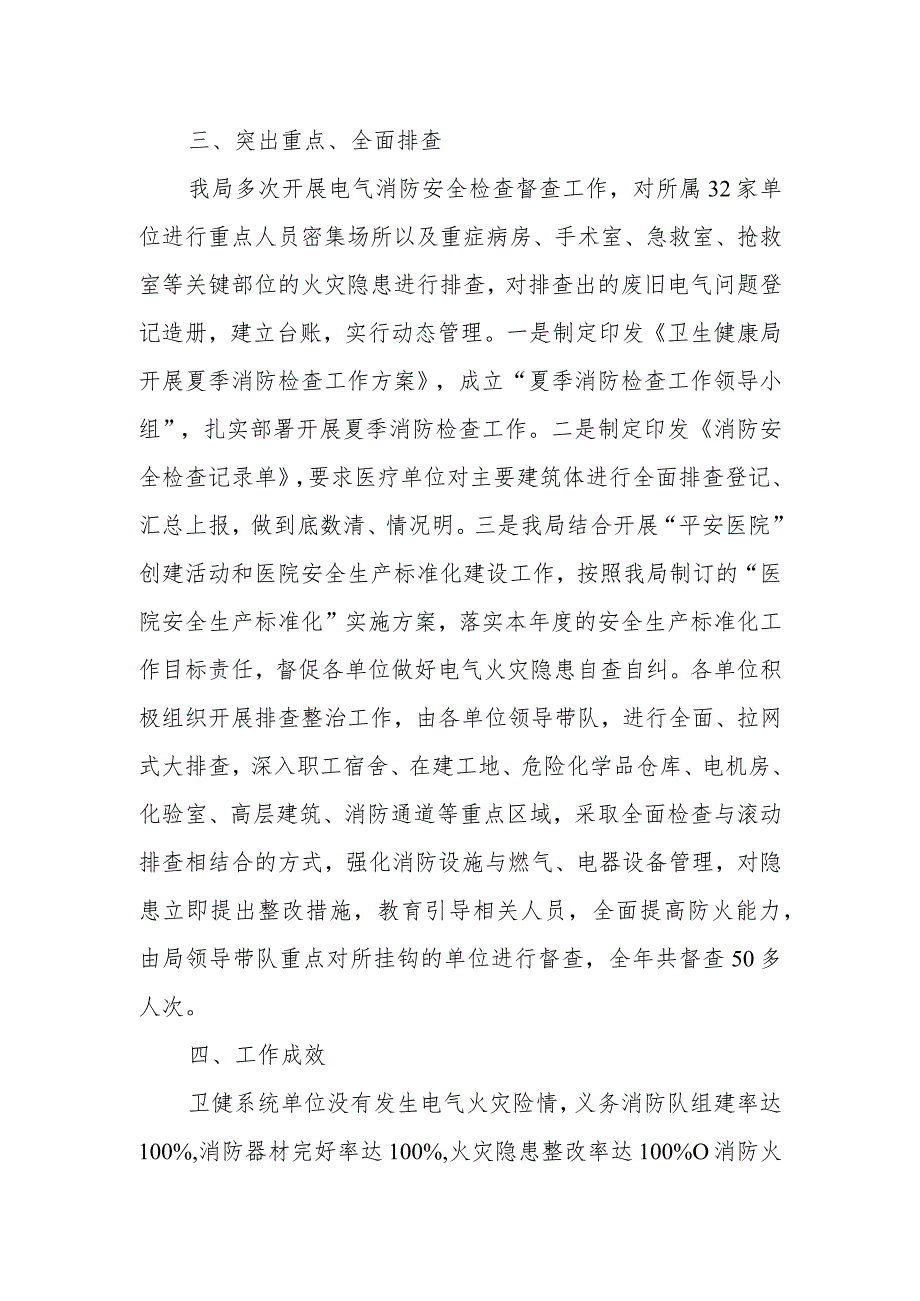 三、突出重点、全面排查
我局多次开展电气消防安全检查督查工作，对所属32家单
位进行重点人员密集场所以及重症病房、手术室、急救室、抢救
室等关键部位的火灾隐患进行排查，对排查出的废旧电气问题登
记造册，建立台账，实行动态管理。一是制定印发《卫生健康局
开展夏季消防检查工作方案》，成立“夏季消防检查工作领导小
组”，扎实部署开展夏季消防检查工作。二是制定印发《消防安
全检查记录单》，要求医疗单位对主要建筑体进行全面排查登记、
汇总上报，做到底数清、情况明。三是我局结合开展“平安医院”
创建活动和医院安全生产标准化建设工作，按照我局制订的“医
院安全生产标准化”实施方案，落实本年度的安全生产标准化工
作目标责任，督促各单位做好电气火灾隐患自查自纠。各单位积
极组织开展排查整治工作，由各单位领导带队，进行全面、拉网
式大排查，深入职工宿舍、在建工地、危险化学品仓库、电机房、
化验室、高层建筑、消防通道等重点区域，采取全面检查与滚动
排查相结合的方式，强化消防设施与燃气、电器设备管理，对隐
患立即提出整改措施，教育引导相关人员，全面提高防火能力，
由局领导带队重点对所挂钩的单位进行督查，全年共督查50多
人次。
四、工作成效
卫健系统单位没有发生电气火灾险情，义务消防队组建率达
100%,消防器材完好率达100%,火灾隐患整改率达100%O消防火